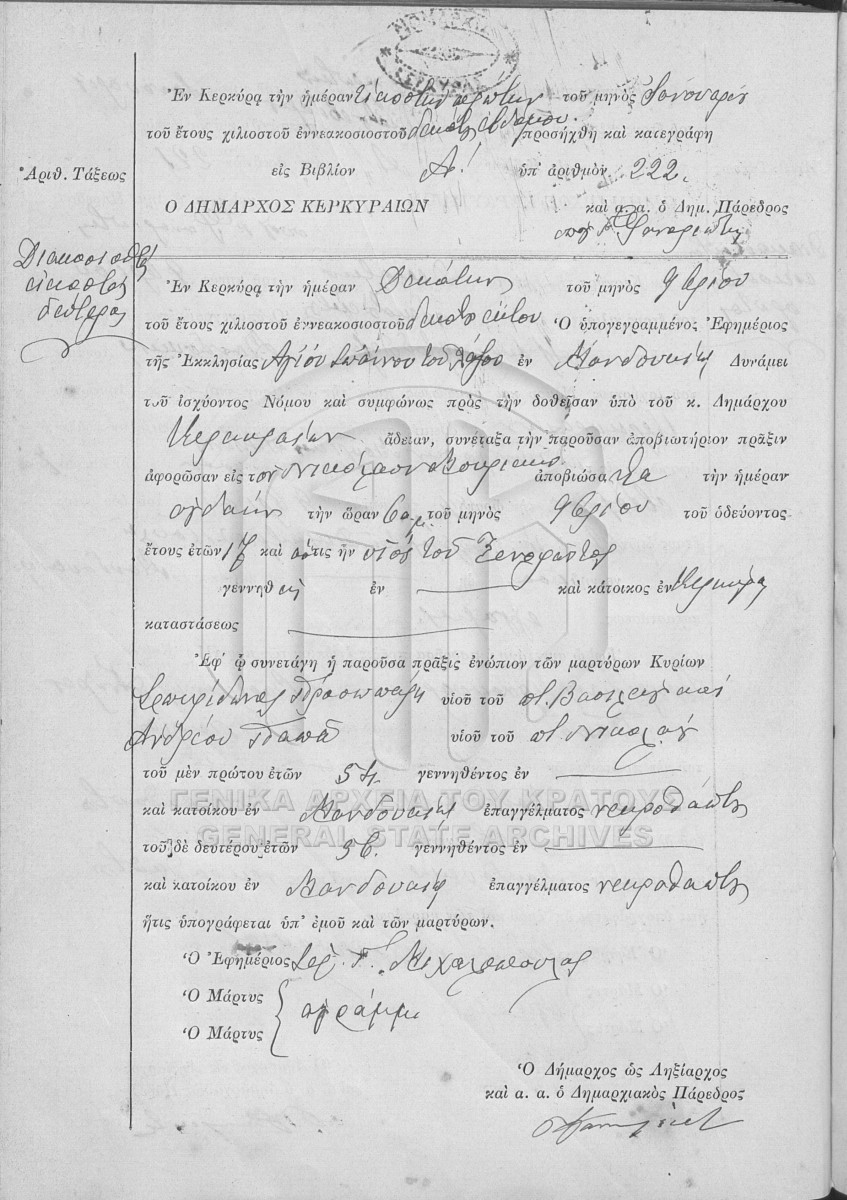 ΝΟΜΑΡΧΙΑ ΚΕΡΚΥΡΑΣ
Ἐν Κερκύρᾳ τὴν ἡμέραν εἰκοστὴν πρώτην τοῦ μηνὸς Ἰανουαρίου
τοῦ ἔτους χιλιοστοῦ ἐννεακοσιοστοῦ δεκάτου ἑβδόμου προσήχθη καὶ κατεγράφη
Ἀριθ. Τάξεως
εἰς Βιβλίον Α! ὑπ' ἀριθμὸν 222.
Ο ΔΗΜΑΡΧΟΣ ΚΕΡΚΥΡΑΙΩΝ καὶ α.α. ὁ Δημ. Πάρεδρος
Διακοσιοστὴ
εἰκοστὴ
δευτέρα
Ἐν Κερκύρᾳ τὴν ἡμέραν Δεκάτην τοῦ μηνὸς 9βρίου
τοῦ ἔτους χιλιοστοῦ ἐννεακοσιοστοῦ δεκάτου ἕκτου Ὁ ὑπογεγραμμένος Ἐφημέριος
τῆς Ἐκκλησίας Ἁγίου ἐν Μανδουκίῳ Δυνάμει
τοῦ ἰσχύοντος Νόμου καὶ συμφώνως πρὸς τὴν δοθεῖσαν ὑπὸ τοῦ κ. Δημάρχου
Κερκυραίων ἄδειαν, συνέταξα τὴν παροῦσαν ἀποβιωτήριον πρᾶξιν
ἀφορῶσαν εἰς τὸν Νικόλαον ἀποβιώσαντα τὴν ἡμέραν
ὀγδόην τὴν ὥραν 6 τοῦ μηνὸς 9βρίου τοῦ ὁδεύοντος
ἔτους ἐτῶν 17 καὶ ὅστις ἦν υἱὸς τοῦ
γεννηθεὶς ἐν καὶ κάτοικος ἐν Κερκύρᾳ
καταστάσεως
Ἐφ' ᾧ συνετάγη ἡ παροῦσα πρᾶξις ἐνώπιον τῶν μαρτύρων Κυρίων
Σπυρίδωνος υἱοῦ τοῦ π. Βασιλείου καὶ
Ἀνδρέου Παπᾶ υἱοῦ τοῦ π. Νικολάου
τοῦ μὲν πρώτου ἐτῶν 54 γεννηθέντος ἐν
καὶ κατοίκου ἐν Μανδουκίῳ ἐπαγγέλματος νεκροθάπτη
ΓΕΝΙΚΑ ΑΡΧΕΙΑ ΤΟΥ ΚΡΑΤΟΥΣ
GENERAL STATE ARCHIVES
τοῦ δὲ δευτέρου ἐτῶν 36. γεννηθέντος ἐν
καὶ κατοίκου ἐν Μανδουκίῳ ἐπαγγέλματος νεκροθάπτη
ἥτις ὑπογράφεται ὑπ' ἐμοῦ καὶ τῶν μαρτύρων.
Ὁ Ἐφημέριος
Ὁ Μάρτυς
ἀγράμμ
Ὁ Μάρτυς
Ὁ Δήμαρχος ὡς Ληξίαρχος
καὶ α. α. ὁ Δημαρχιακὸς Πάρεδρος